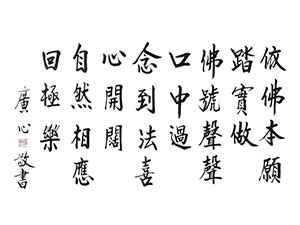 依佛本願
踏實做
佛號聲聲
口中過
念到法喜
心開闊
自然相應
回極樂
廣心敬書